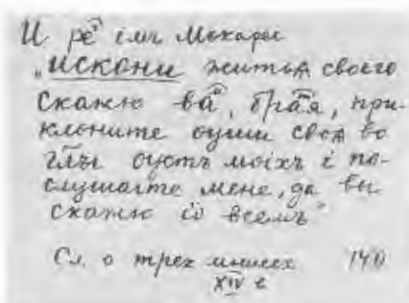 И ре҃ імъ Макарє
„искони житьꙗ своего
скажю ва҃, бра҃я, при-
клоните оуши своꙗ во
гл҃ы оустъ моіхъ і по-
слушаите мене, да вы
скажю ѿ всемъ“
Сл. о трех мнисех 140
XIV в